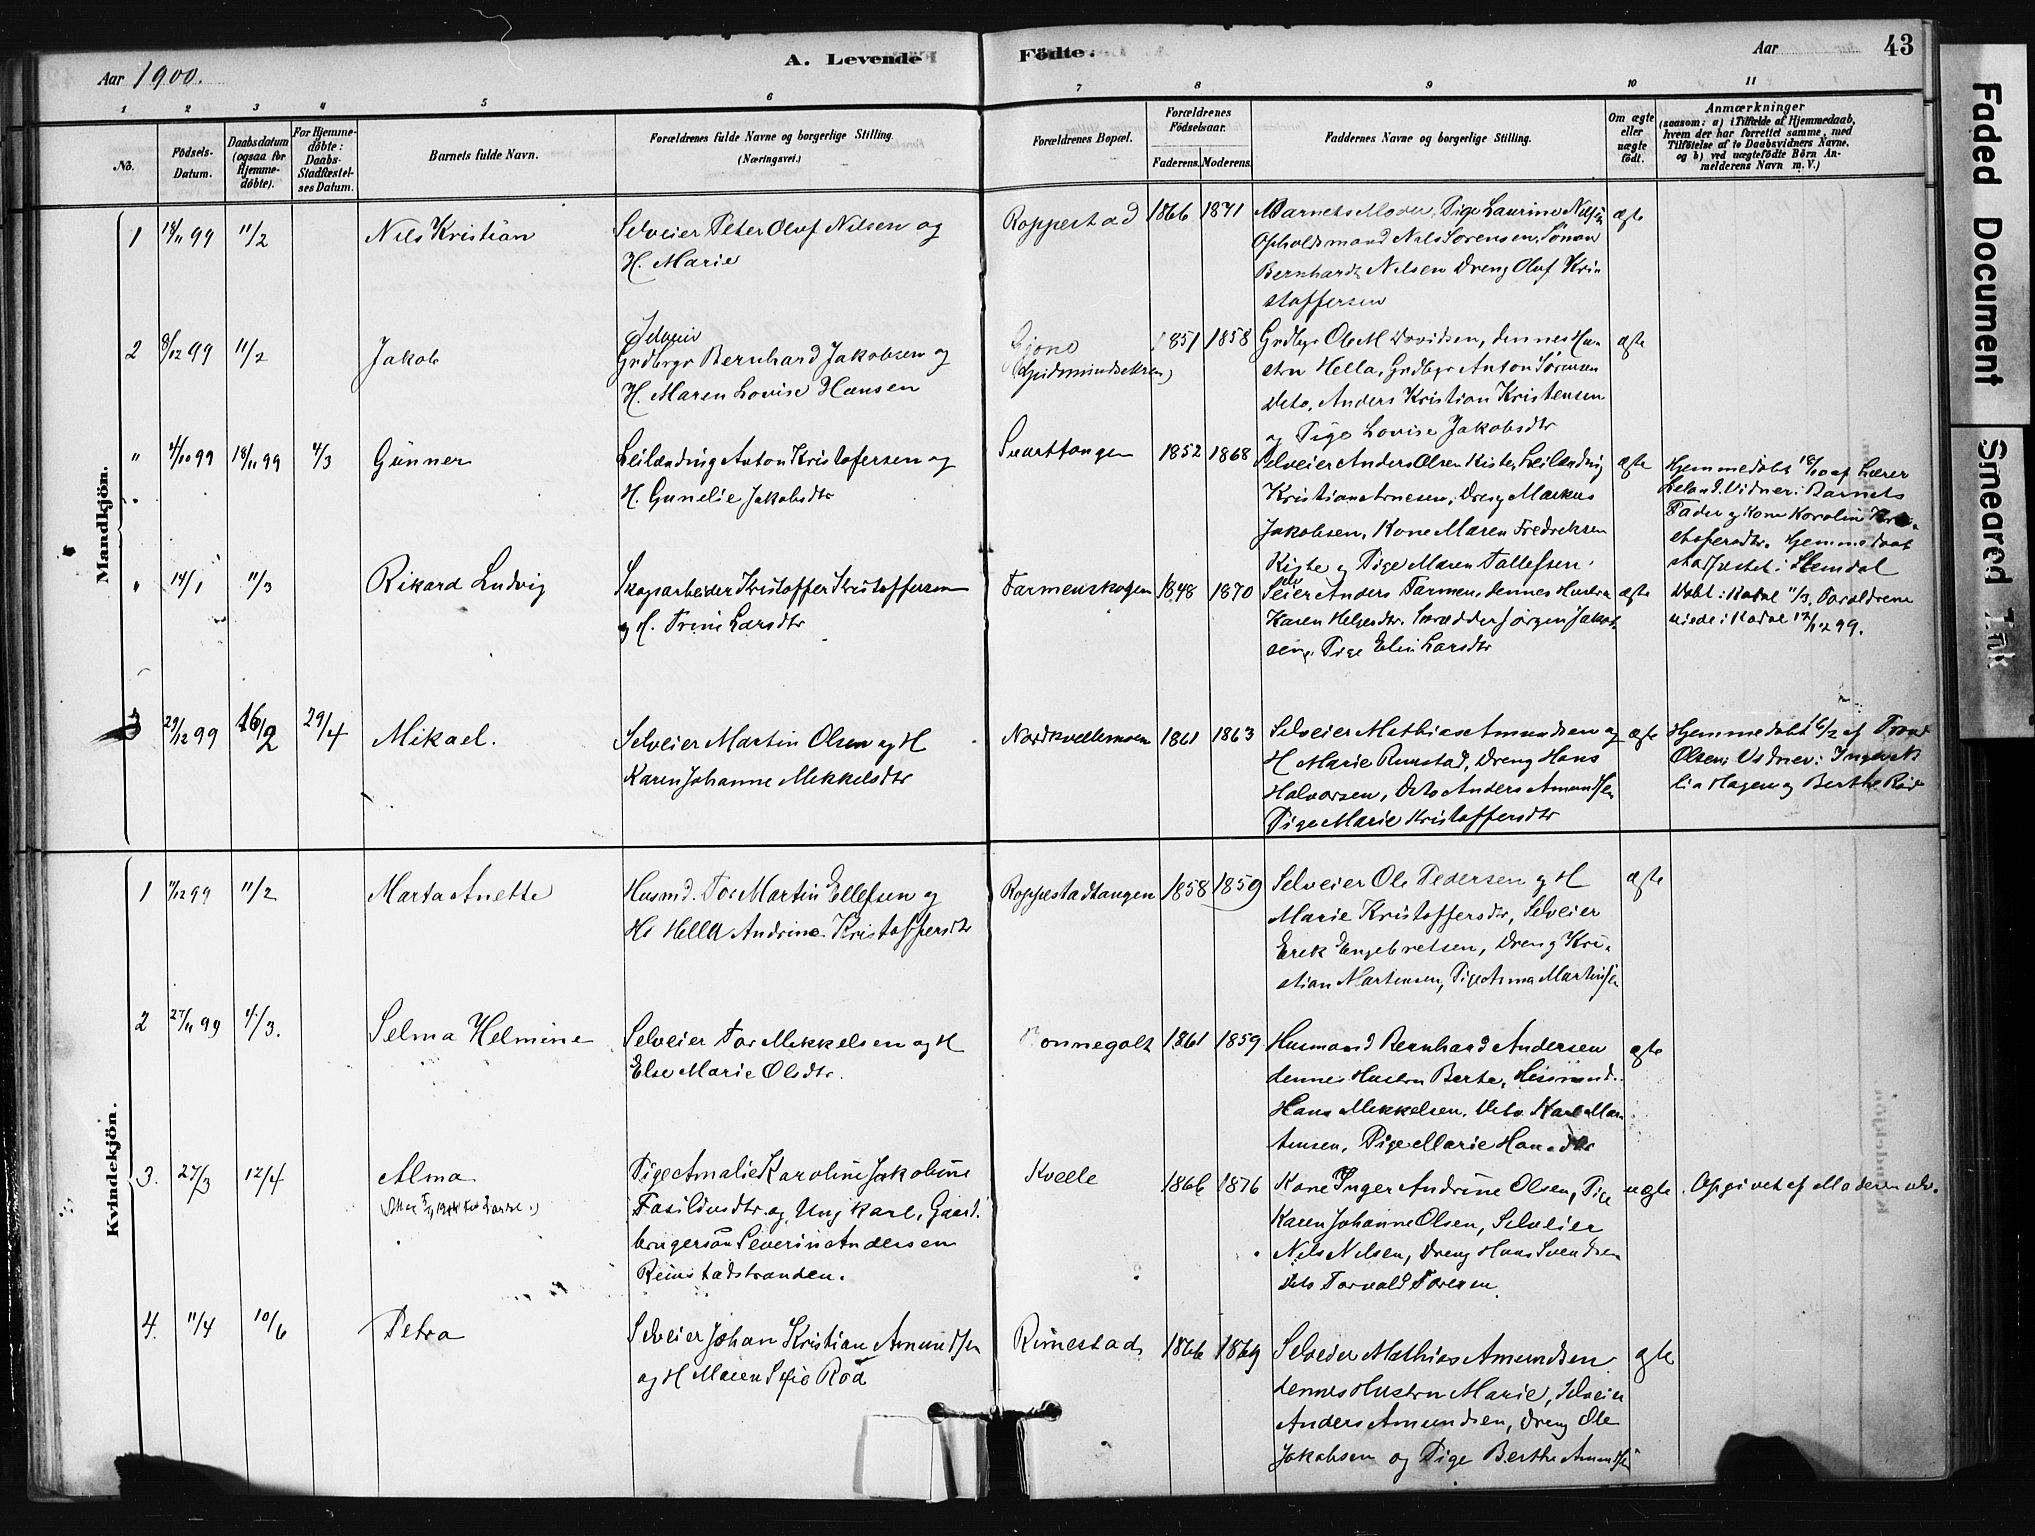 Aar 1900.
A. Levende Födte.
Aar
43
1 2 3 4 5 6 7 8 9 10 11
No.
Födsels-
Datum.
Daabsdatum
(ogsaa for
Hjemme-
döbte).
For Hjemme-
döbte:
Daabs-
Stadfæstel-
ses Datum.
Barnets fulde Navn.
Forældrenes fulde Navne og borgerlige Stilling.
(Næringsvei.)
Forældrenes Bopæl.
Forældrenes
Födselsaar.
Faderens. Moderens.
Faddernes Navne og borgerlige Stilling.
Om ægte
eller
uægte
födt.
Anmærkninger
(saasom: a) i Tilfælde af Hjemmedaab,
hvem der har forrettet samme, med
Tilföielse af to Daabsvidners Navne.
og b) ved uægtefödte Börn An-
melderens Navn m. V.)
Mandkjön.
1 18/11 99 11/2
Nils Kristian
Selveier Peter Oluf Nilsen og
H. Marie
Roppestad
1866 1871
Barnets Moder, Pige Laurine Nilsen
Opholdsmand Nils Sørensen, Sønn
Bernhard Nilsen Dreng Oluf Kri
stoffersen
ægte
2 9/12 99 11/2
Jakob
Selveier
Grdbrgr Bernhard Jakobsen og
H. Maren Lovise Hansen
Gjono
1851 1858
Grdbgr Ole M Davidsen, dennes Hu-
stru Hella, Grdbgr Anton Sørensen
Deto, Anders Kristian Kristensen
og Pige Lovise Jakobsdtr
ægte
" 4/10 99 18/11 99 4/3
Gunner
Leilænding Anton Kristofersen og
H. Gunelie Jakobsdtr
Svarttangen
1852 1868
Selveier Anders Olsen Kiste, Leilænding
Kristian Arnesen, Dreng Markus
Jakobsen, Kone Maren Fredreksen
Kiste og Pige Maren Tollefsen.
ægte
Hjemmedøbt 18/11 af Lærer
Leland. Vidner: Barnets
Fader og Kone Karoline Kri-
stofersdtr. Hjemmedaab
stadfæstet i Slemdal
" 14/1 11/3
Rikard Ludvig
Skogsarbeider Kristoffer Kristoffersen
og H. Trine Larsdtr
Farmenskogen
1848 1870
Seleier Anders Farmen, dennes Hustru
Karen Helgesdtr. Skrædder Jørgen Jakob
sen, Pige Elin Larsdtr
ægte
Døbt i Kodal 11/3. Forældrene
viede i Kodal 12/12 99.
3 29/12 99 16/2 29/4
Mikael.
Selveier Martin Olsen og H
Karen Johanne Mekkelsdtr
Nordkvellemoen
1861 1863
Selveier Mathias Amundsen og
H Marie Rimstad, Dreng Hans
Halvorsen, Deto Anders Amundsen
Pige Marie Kristoffersdtr
ægte
Hjemmedøbt 16/2 af Tron
Olsen; Vidner: Ingeborg
lia Hagen og Berthe Rød
Kvindekjön.
1 11/12 99 11/2
Marta Anette
Husmd. Tor Martin Ellefsen og
H. Hella Andrine Kristoffersdtr
Roppestadtangen
1858 1859
Selveier Ole Pedersen og H
Marie Kristoffersdtr, Selveier
Erik Engebretsen, Dreng Kri-
stian Martensen, Pige Anna Martinsen
ægte
2 27/11 99 4/3.
Selma Helmine
Selveier Tor Mekkelsen og H
Else Marie Olsdtr.
Bonnegolt
1861 1859
Husmand Bernhard Andersen
dennes Hustru Berte, Husmand
Hans Mekkelsen, Deto Karl Mar
tinsen, Pige Marie Hansdtr
ægte
3. 27/3 12/4
Alma
Pige Amalie Karoline Jakobine
Fasilidsdtr. og Ung karl, Gaard-
brugersøn Severin Andersen
Reimstadstranden.
Kvelle
1866 1876
Kone Inger Andrine Olsen, Pige
Karen Johanne Olsen, Selveier
Nils Nilsen, Dreng Hans Svendsen
Deto Torvald Toresen.
uægte
Opgivet af Moderen selv.
4. 11/4 10/6
Petra
Selveier Johan Kristian Amundsen
og H Maren Sofie Rød
Rimestad
1866 1869
Selveier Mathias Amundsen
dennes Hustru Marie, Selveier
Anders Amundsen, Dreng Ole
Jakobsen og Pige Berthe Amundsen
ægte
Faded Document
Smeared Ink